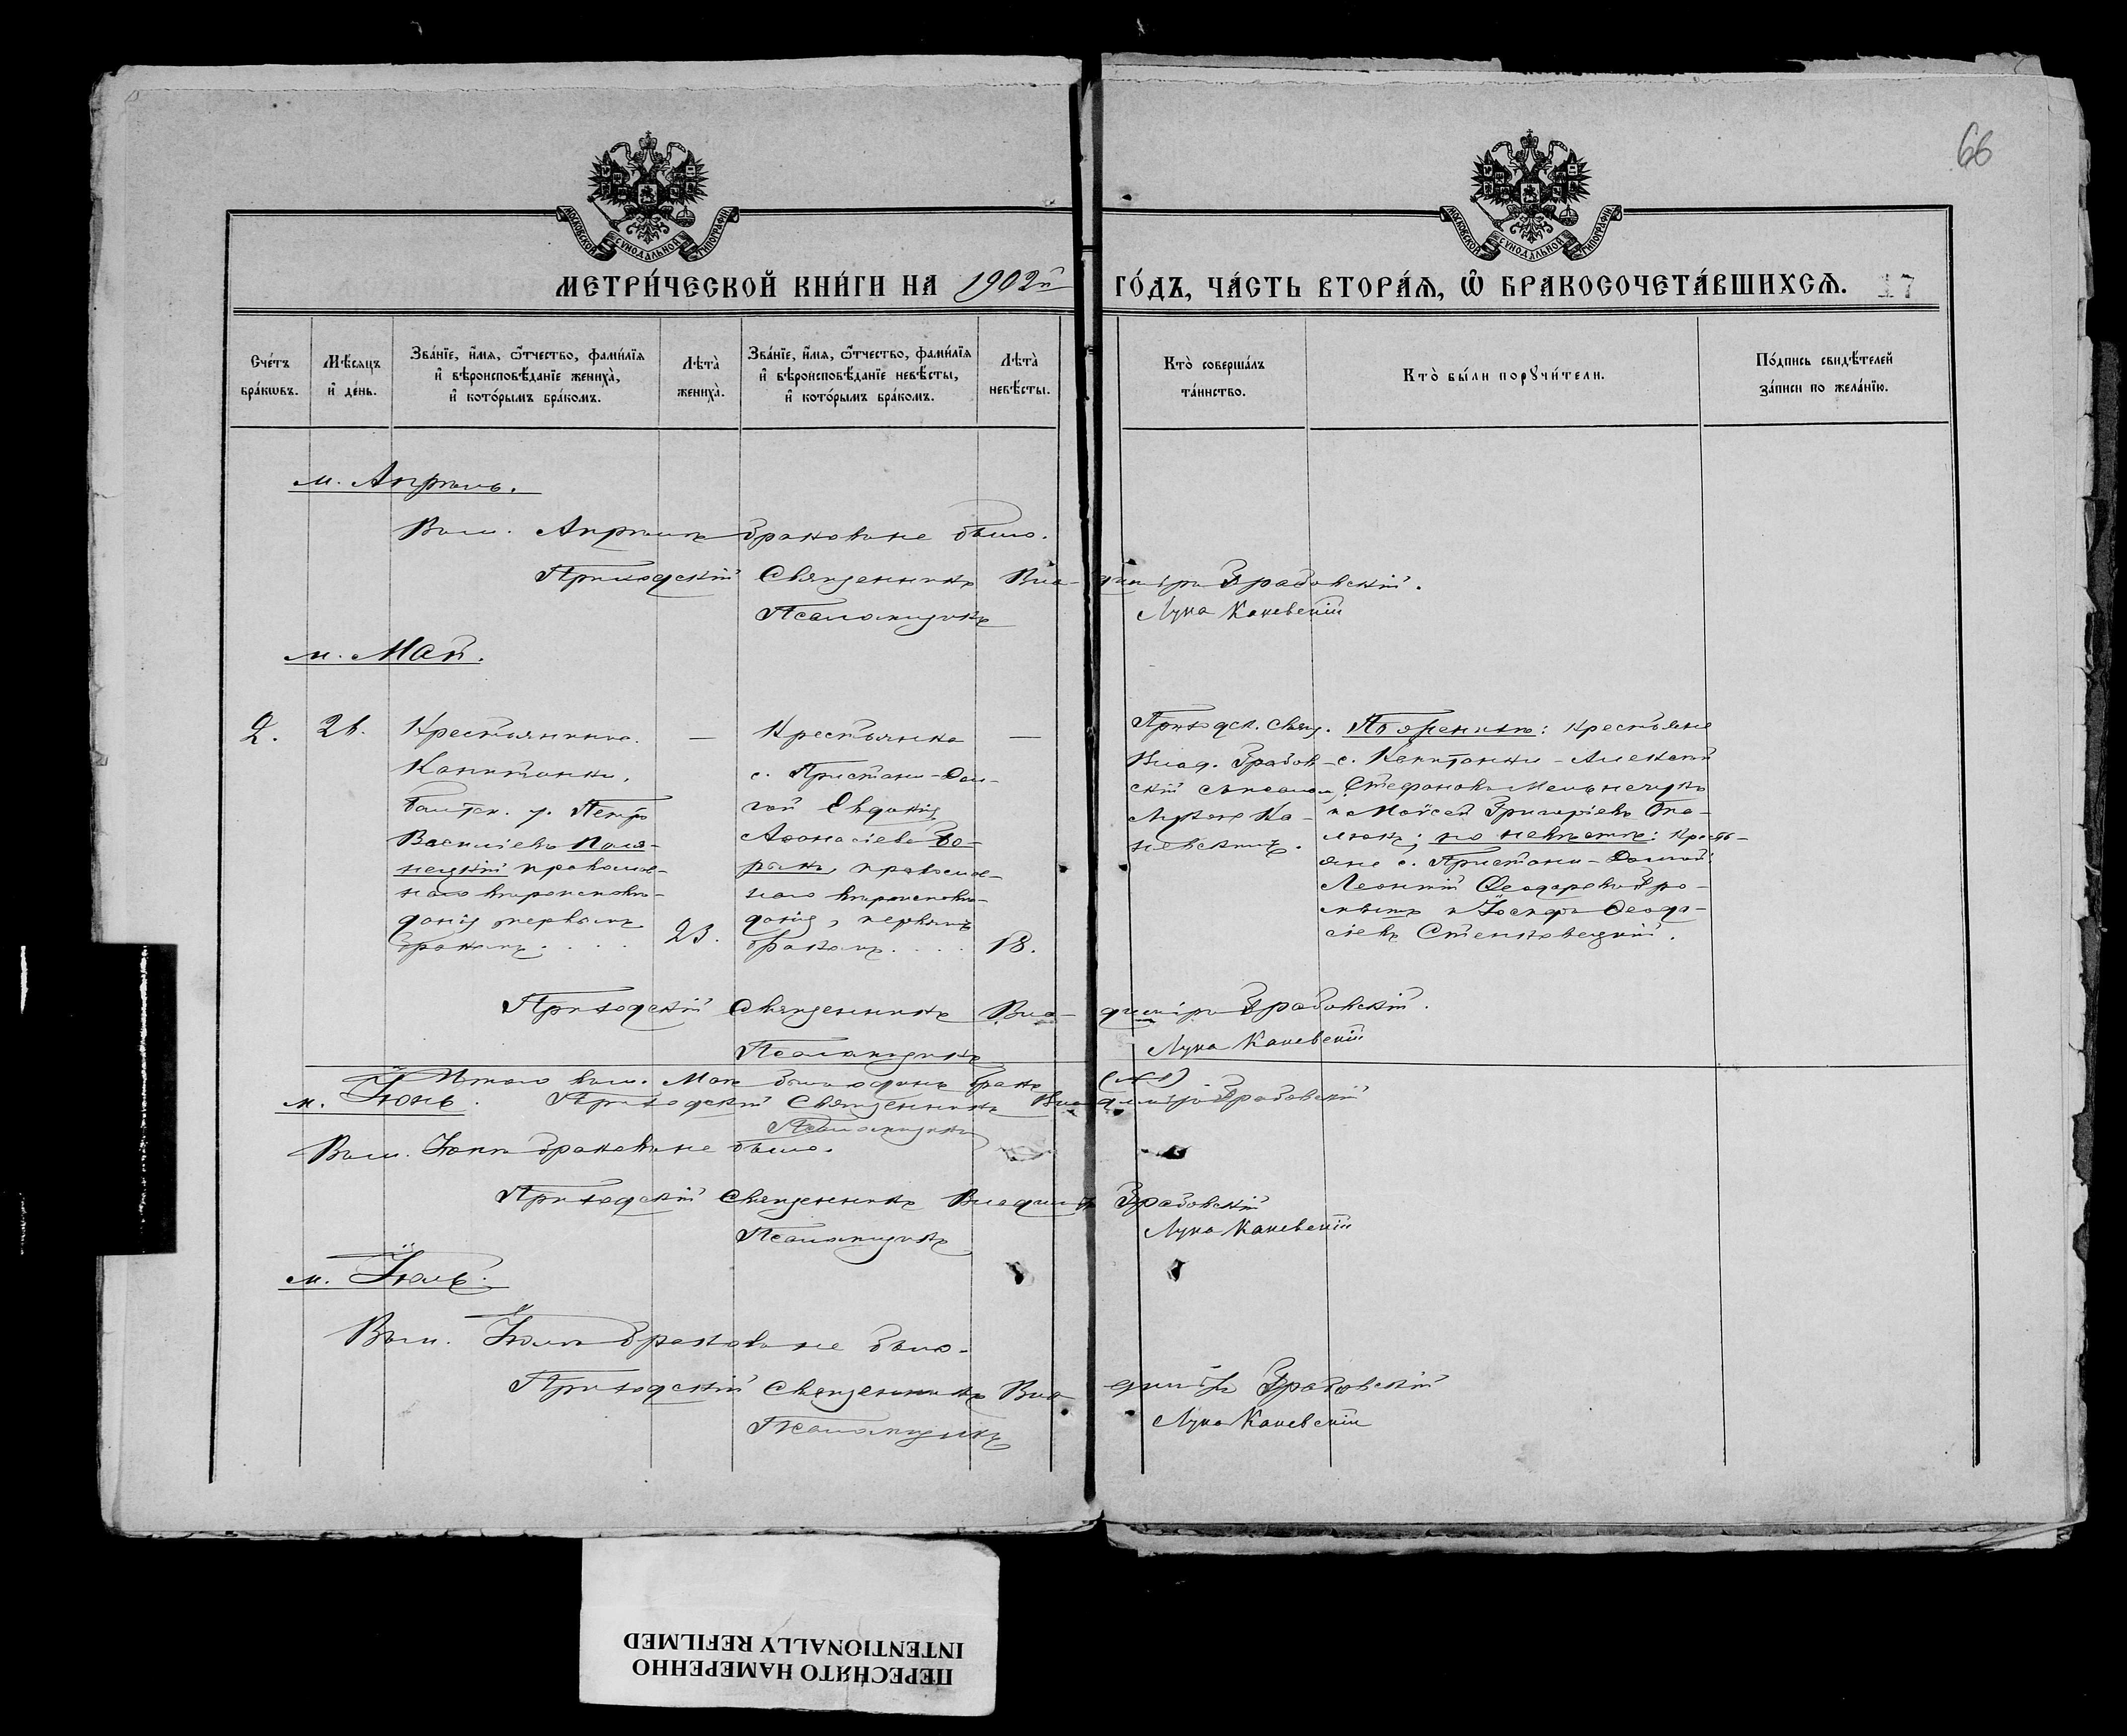 66
МОСКОВСКОЙ СѴНОДАЛЬНОЙ ТИПОГРАФІИ
МОСКОВСКОЙ СѴНОДАЛЬНОЙ ТИПОГРАФІИ
МЕТРИ́ЧЕСКОЙ КНИ́ГИ НА 1902й ГО́ДЪ, ЧА́СТЬ ВТОРА́Ѧ, Ѡ҃ БРАКОСОЧЕТА́ВШИХСѦ. 17
Сче́тъ бра́кѡвъ.
Мѣ́сѧцъ и҆ де́нь.
Зва́нїе, и҆́мѧ, ѻ҆́тчество, фами́лїѧ
и҆ вѣроисповѣ́данїе жениха̀,
и҆ кото́рымъ бра́комъ.
Лѣта̀ жениха̀.
Зва́нїе, и҆́мѧ, ѻ҆́тчество, фами́лїѧ
и҆ вѣроисповѣ́данїе невѣ́сты,
и҆ кото́рымъ бра́комъ.
Лѣта̀ невѣ́сты.
Кто̀ соверша́лъ
та́инство.
Кто̀ бы́ли порꙋчи́тели.
По́дпись свидѣ́телей
за́писи по жела́нїю.
м. Апрѣль.
В ъ м. Апрѣлѣ браковъ не было.
Приходскій Священникъ Вла-димiръ Грабовскій.
Псаломщикъ Лука Каневскій
м. Май.
2.
26.
Крестьянинъ с.
Капитанки,
Балтск. у. Петръ
Василіевъ Поля-
нецкій православ-
наго вѣроисповѣ-
данія первымъ
бракомъ. . . . .
23.
Крестьянка
с. Пристани-Дол-
гой Евдокія
Афанасіева
православ-
наго вѣроисповѣ-
данія, первымъ
бракомъ. . . .
18.
Приходск. Свящ.
Влад. Грабов-
скій съ псалом.
Лукою Ка-
невскимъ.
По женихѣ: крестьяне
с. Капитанки - Алексѣй
Стефановъ Мельничукъ
и Моѵсей Григоріевъ
по невѣстѣ: кресть-
яне с. Пристани-Долгой:
Леонтій Ѳеодоровъ
и Іосифъ
Стенковецкій.
Приходскій Священникъ Вла-димiръ Грабовскій.
Псаломщикъ Лука Каневскій
Итого въ м. Маѣ былъ одинъ бракъ (№1)
м. Іюнь. Приходскій Священникъ Владимiръ Грабовскій
Псаломщикъ
В ъ м. Іюнѣ браковъ не было.
Приходскій Священникъ Владимiръ Грабовскій
Псаломщикъ Лука Каневскій
м. Іюль.
В ъ м. Іюлѣ браковъ не было.
Приходскій Священникъ Вла-димiръ Грабовскій
Псаломщикъ Лука Каневскій
ПЕРЕСНЯТО НАМЕРЕННО
INTENTIONALLY REFILMED